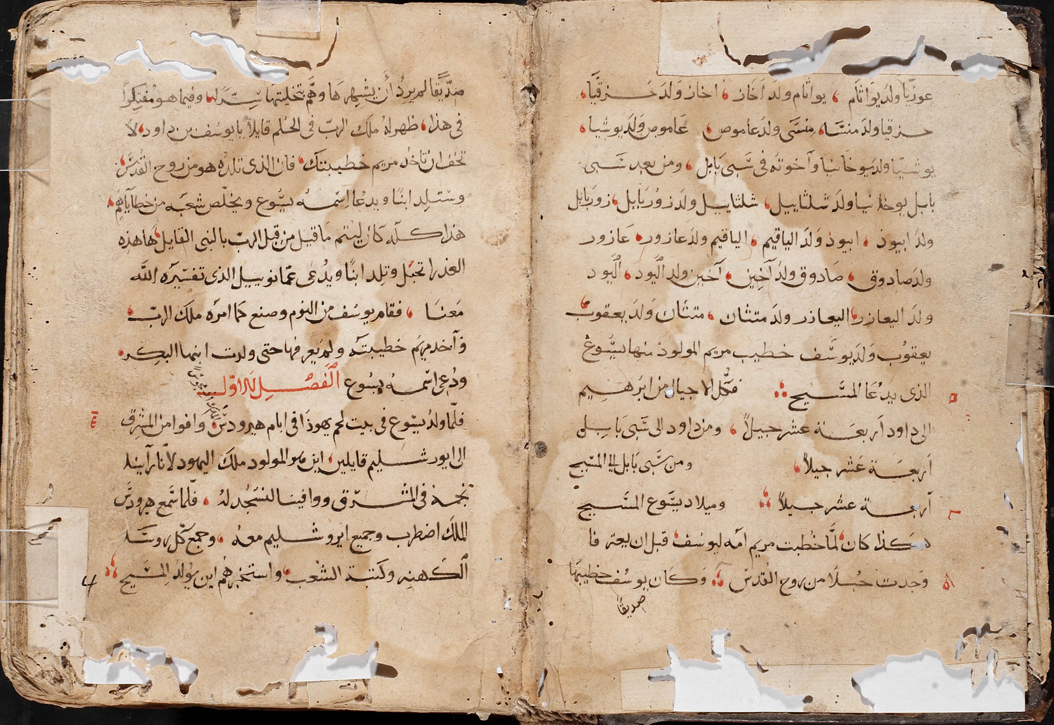 عوزيا ولد يواثام ، يواثام ولد احاز ، احاز ولد حزقيا،
حزقيا ولد منشا، منشى ولد عاموص، عاموص ولد يوشيا،
يوشيا ولد يوخانيا وآخوته في سبى بابل ، ومن بعد سبى
بابل يوخانيا ولد شلثاييل، شلثاييل ولد زور بابل ، زور بابل
ولد ابيود ، ابيود ولد الياقيم ، الياقيم ولد عازور، عازور
ولد صادوق ، صادوق ولد آخين ، آخين ولد اليود ، اليود
ولد اليعازر، اليعازر ولد متثان ، متثان ولد يعقوب
يعقوب ولد يوسف خطيب مريم المولود منها يسوع
الذى يدعا المسيح فكل الاجيال من ابرهيم
الى داود اربعة عشر جيلا ، ومن داود الى سبى بابل
اربعة عشر جيلا، ومن سبى بابل الى المسيح
آربعة عشر جيلا وميلاد يسوع المسيح
هكذا كان لما خطبت مريم امه ليوسف قبل ان يعترفا
وجدت حبلا من روح القدس وكان يوسف خطيبها
صديقا
صديقا لم يرد أن يشهرها وهم بتخليتها سرا، وفيما هو مفكرا
في هذا، ظهر له ملك الرب في الحلم قايلا يا يوسف بن داود، لا
تخف ان تاخد مريم خطيبتك، فان الذى تلده هو من روح القدس،
وستلد ابنا ويدعا اسمه يسوع ويخلص شعبه من خطاياهم،
هذا كله كان ليتم ما قيل من قبل الرب بالنبى القايل، ها هذه
العذرا تحبل وتلد ابنا ويدعى عمانوييل الذى تفسيره الله
معنا ، فقام يوسف من النوم وصنع كما امره ملك الرب،
وآخد مريم خطيبته ولم يعرفها حتى ولدت ابنها البكر،
ودعى اسمه يسوع الفصل الاول
فلما ولد يسوع في بيت لحم يهوذا في ايام هيرودس وافوا من المشرق
الى ايورشليم قايلين، اين هو المولود ملك اليهود لانا راينا
نجمه في المشرق ووافينا لنسجد له ، فلما سمع هيرودس
الملك اضطرب وجميع ايروشليم معه ، وجمع كل روسا
الكهنه وكتبة الشعب، واستخبرهم اين يولد المسيح